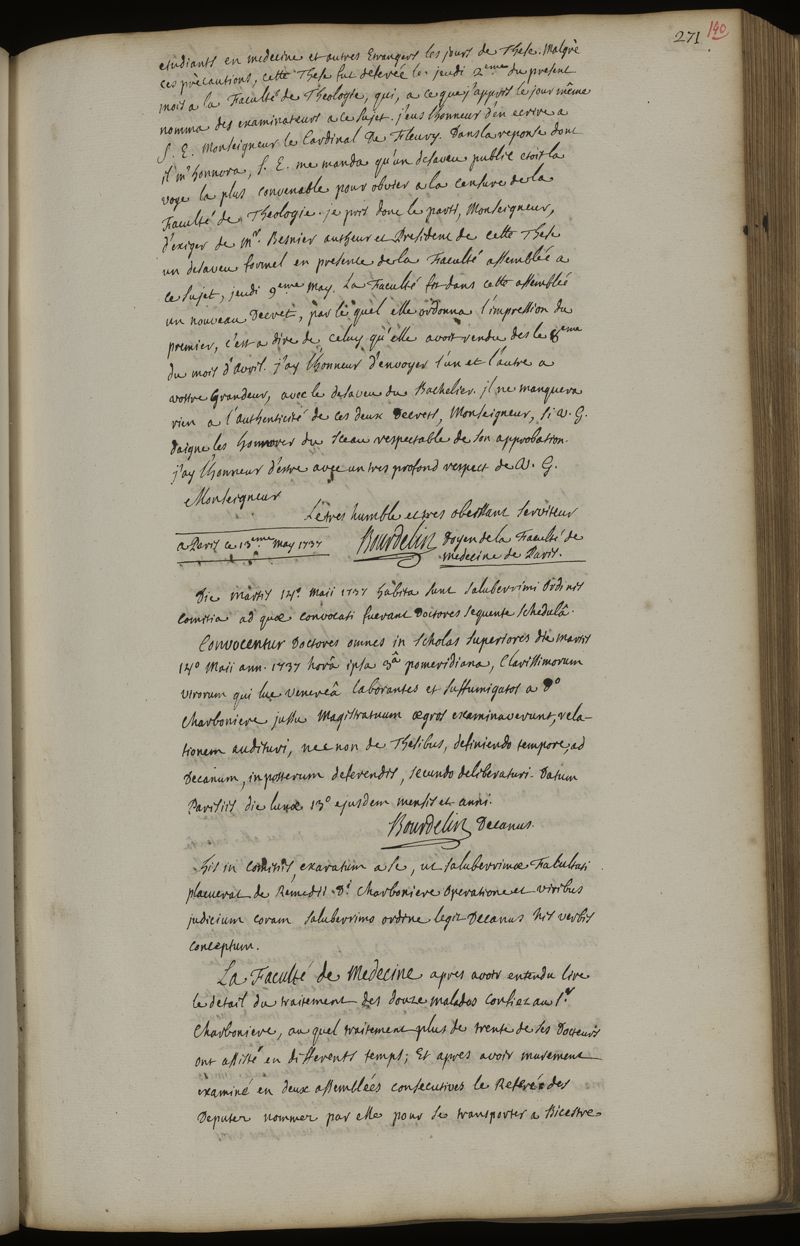 271 140
etudiants en medecine et autres Etrangers les jours de These. Malgrè
ces prècautions, cette These fut deferèe le jeudi 2eme du present
mois a la Faculté de Theologie, qui, a ce que j'appris le jour même
nomma des examinateurs a ce sujet. j'eus lhonneur d'en ecrire a
S. E. Monseigneur le Cardinal De Fleury. Dans la reponse dont
il m'honnora, S. E. me manda qu'un desaveu public etoit la
voye la plus convenable pour obvier a la censure de la
Faculté de Theologie. je pris donc le parti, Monseigneur,
d'exiger de Mr. Besnier autheur et President de cette These
un desaveu formel en presence de la Faculté assemblèe a
ce sujet, jeudi 9eme May. La Faculté fit dans cette assemblèe
un nouveau Decret, par le quel elle ordonna l'impression du
premier, c'est a dire de celuy qu'elle avoit rendu des le 8eme
du mois d'avril. j'ay lhonneur d'envoyer l'un et l'autre a
vostre Grandeur, avec le desaveu du Bachelier. jl ne manquera
rien a l'authenticité de ces deux Decrets, Monseigneur, si V. G.
daigne les honnorer du sceau respectable de son approbation.
j'ay lhonneur d'estre avec un tres profond respect de V. G.
Monseigneur
Le tres humble et tres obeissant serviteur
a Paris ce 13eme May 1737 Bourdelin Doyen de la Faculté de
medecine de Paris.
Die martis 14° Maii 1737 habita sunt saluberrimi Ordinis
Comitia ad quæ convocati fuerant Doctores sequente schedulâ.
Convocentur Doctores omnes in scholas superiores die martis
14° Maii ann. 1737 horâ ipsa 3â pomeridiana, Clarissimorum
virorum qui lue venereâ laborantes et suffumigatos a Do
Charboniere jussu Magistratuum ægros examinaverunt, rela-
tionem audituri, nec non de Thesibus, definiendo tempore, ad
Decanum, in posterum deferendis, secundo deliberaturi. Datum
Parisiis die lunæ 13° ejusdem mensis et anni.
Bourdelin Decanus.
His in comitiis, exaratum a se, ut saluberrimæ Facultati
placuerat de Remedii Di Charboniere operatione et viribus
judicium coram saluberrimo ordine legit Decanus his verbis
conceptum.
La Faculté de Medecine apres avoir entendu lire
le detail du traitement des douze malades confiez au Sr
Charboniere, au quel traitement plus de trente de ses Docteurs
ont assisté en differents temps; Et apres avoir murement
examiné en deux assemblées consecutives le Referé des
Deputez nommez par elle pour se transporter a Bicestre